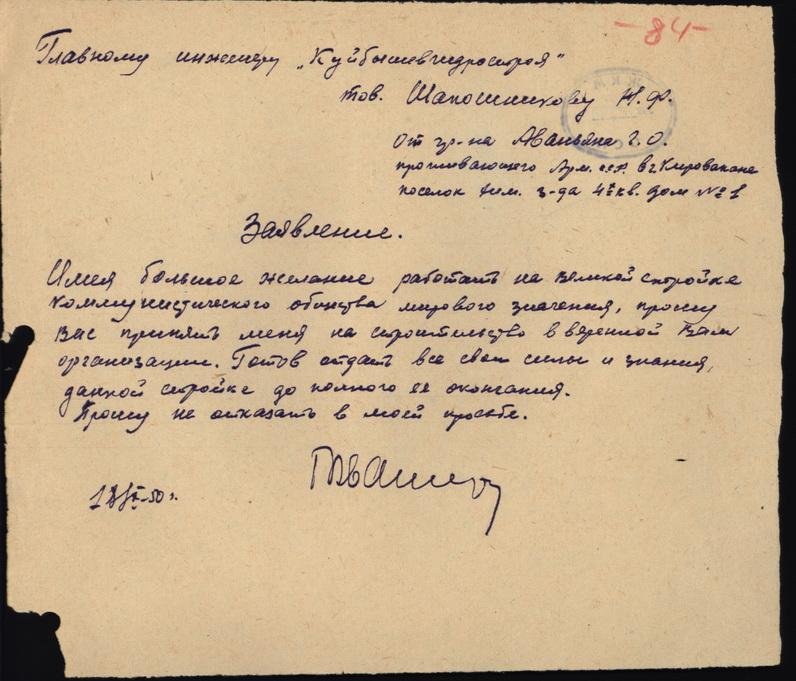 -84-
Главному инженеру „Куйбышевгидростроя"
тов. Шапошникову Н.Ф.
От гр-на Аваньяна Г.О.
проживающего Арм. сср. в г. Кировакане
поселок хим. з-да 4й кв. дом №1
Заявление.
Имея большое желание работать на великой стройке
коммунистического общества мирового значения, прошу
Вас принять меня на строительство в вверенной Вам
организации. Готов отдать все свои силы и знания,
данной стройке до полного ее окончания.
Прошу не отказать в моей просьбе.
50 г.